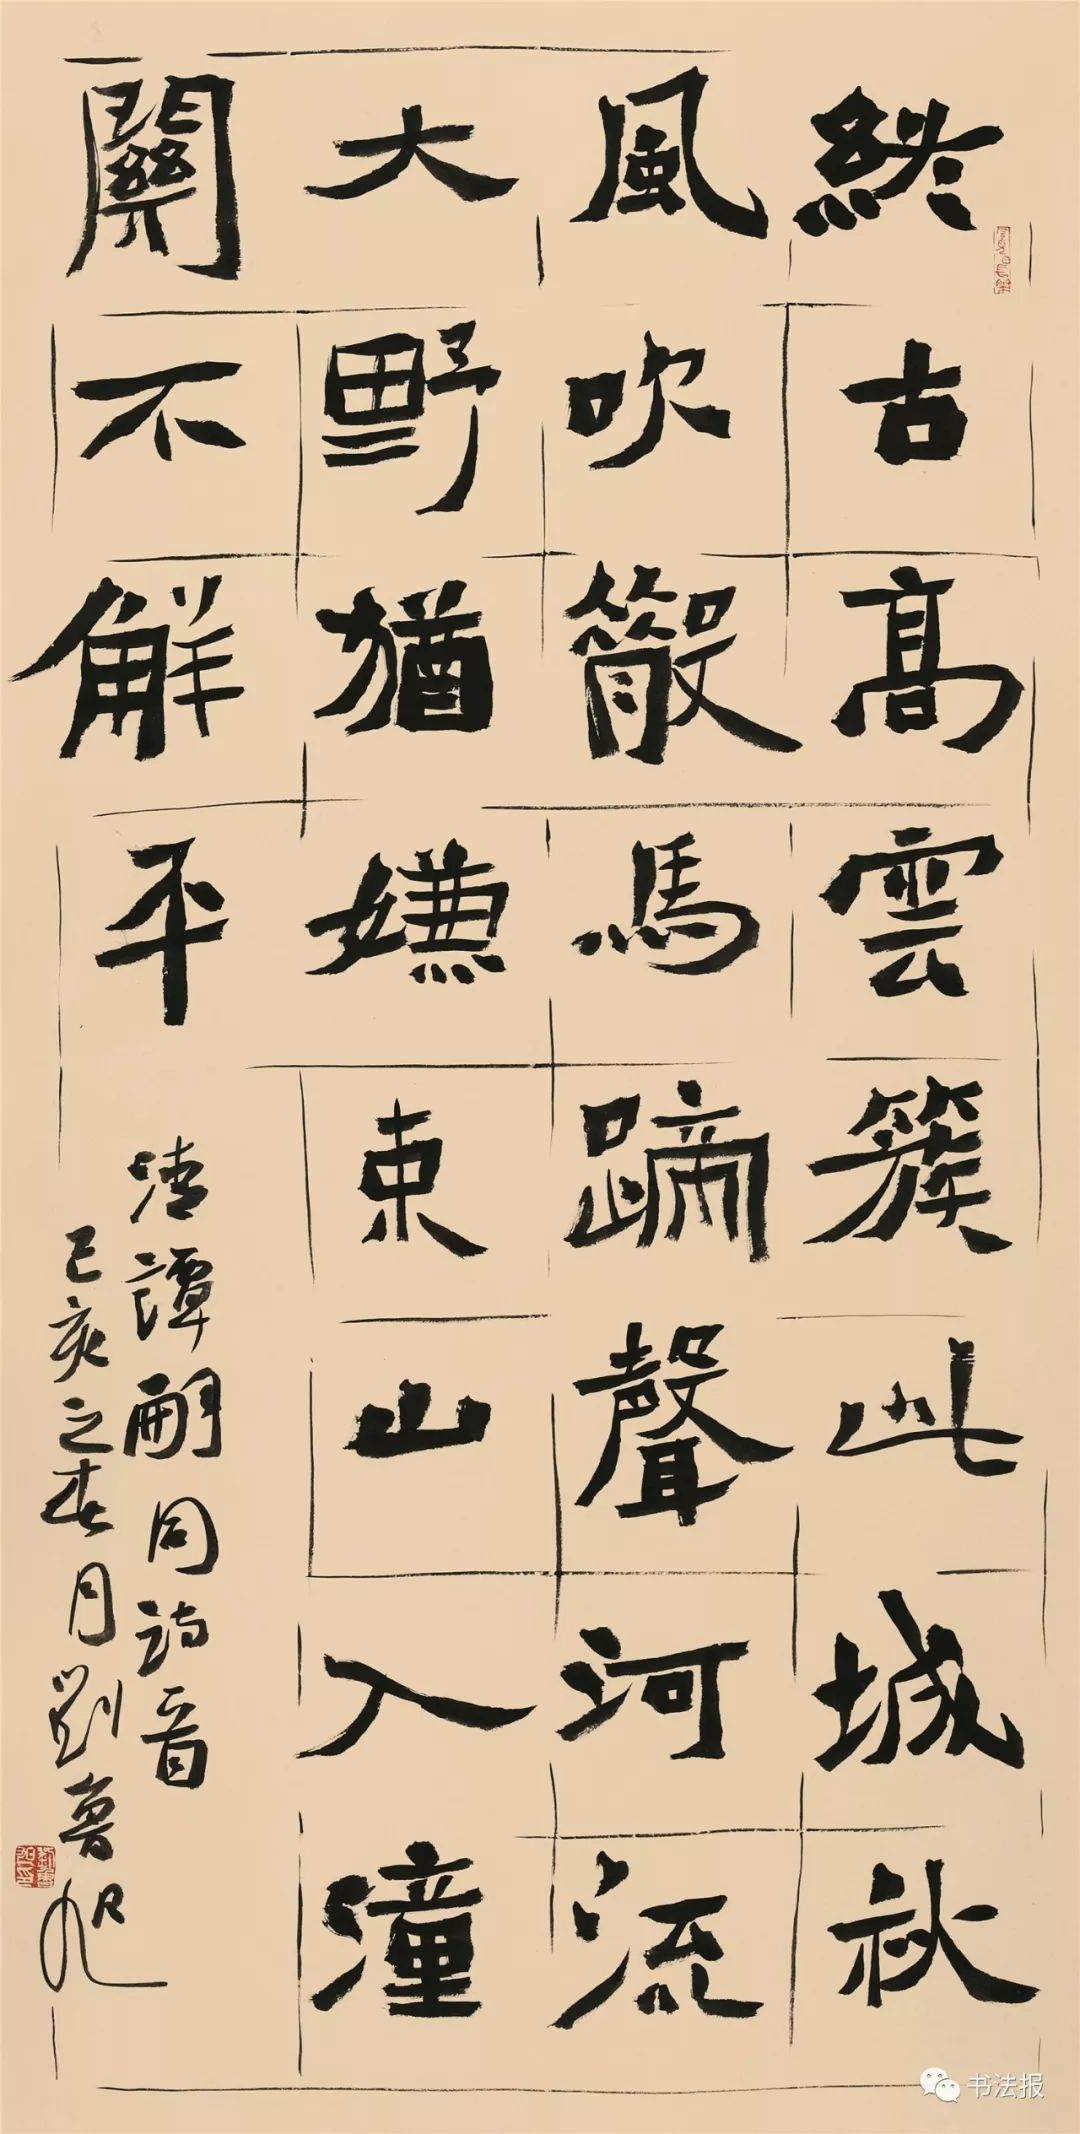 終古高雲簇此城秋
風吹散馬蹄聲河流
大野猶嫌束山入潼
關不解平
清譚嗣同詩一首
己亥之春月劉魯旭
书法报